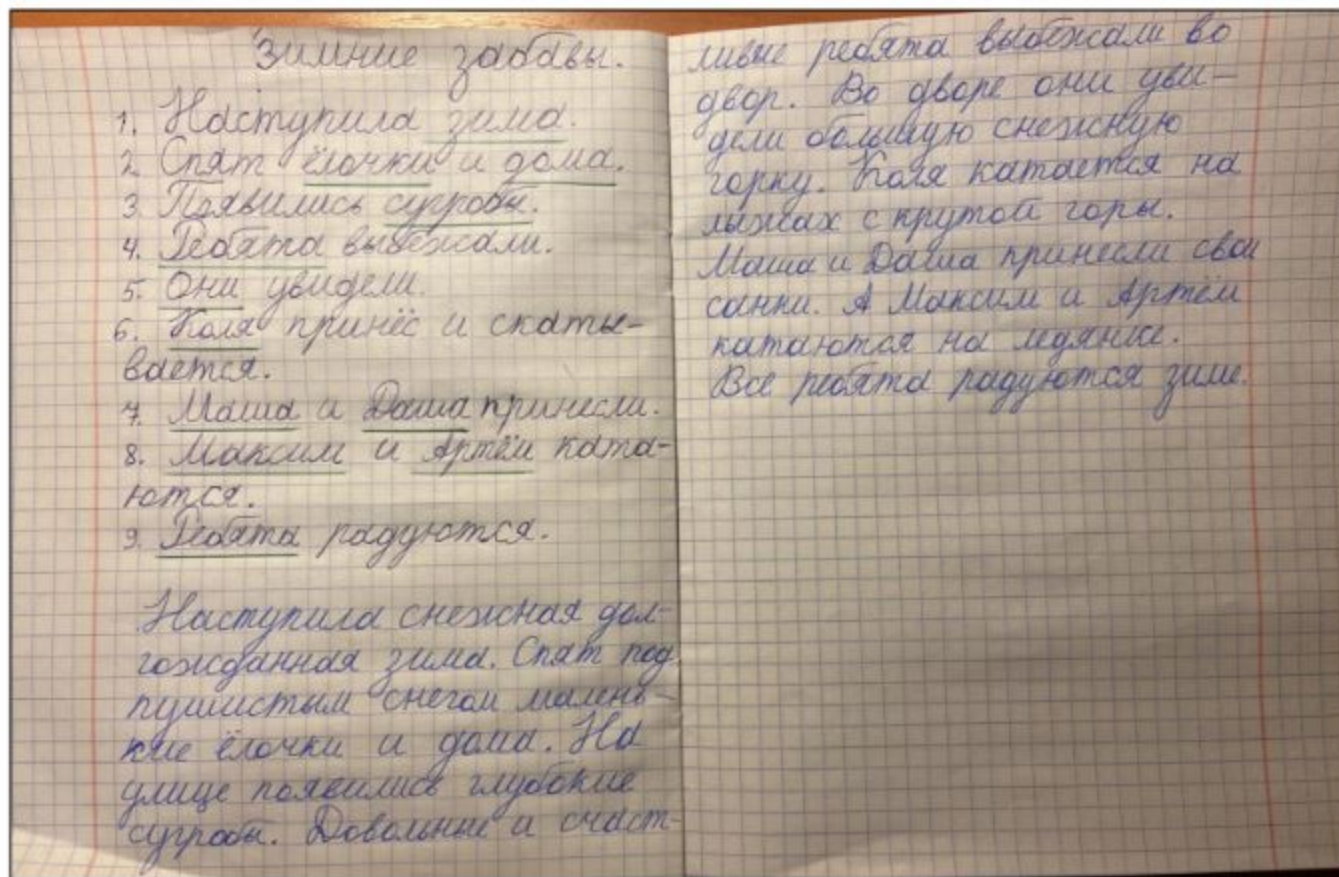 Зимние забавы.
1. Наступила зима.
2. Спят ёлочки и дома.
3. Появились сугробы.
4. Ребята выбежали.
5. Они увидели.
6. Коля принёс и скаты-
вается.
7. Маша и Даша принесли.
8. Максим и Артём ката-
ются.
9. Ребята радуются.
Наступила снежная дол-
гожданная зима. Спят под
пушистым снегом малень-
кие ёлочки и дома. На
улице появились глубокие
сугробы. Довольные и счаст-
ливые ребята выбежали во
двор. Во дворе они уви-
дели большую снежную
горку. Коля катается на
лыжах с крутой горы.
Маша и Даша принесли свои
санки. А Максим и Артём
катаются на ледянке.
Все ребята радуются зиме.